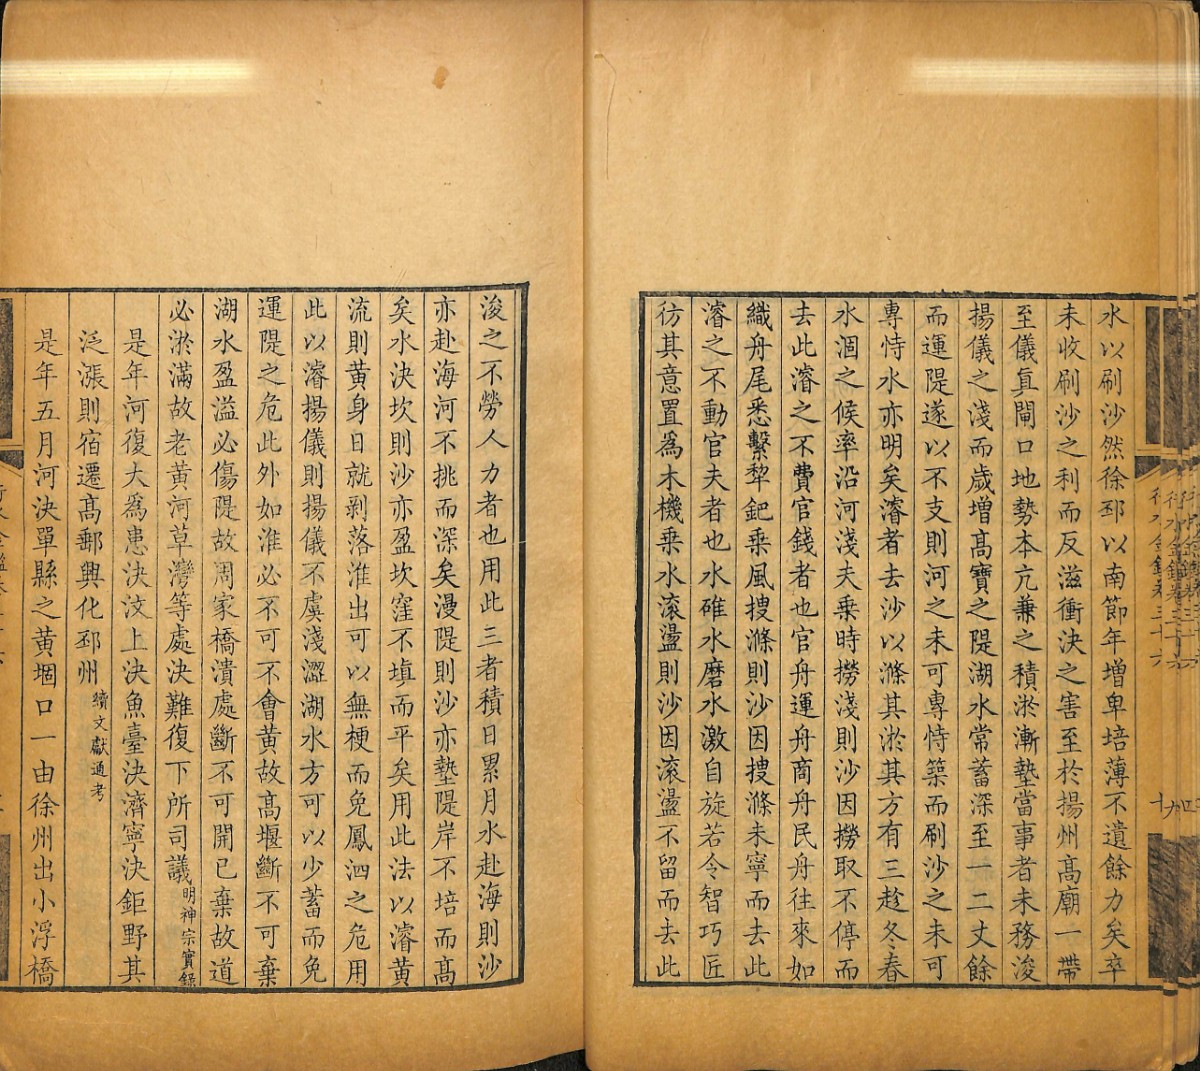 水以刷沙然徐邳以南節年增卑培薄不遺餘力矣卒
未收刷沙之利而反滋衝決之害至於揚州高廟一帶
至儀眞閘口地勢本亢兼之積淤漸墊當事者未務浚
揚儀之淺而歲增高寶之隄湖水常蓄深至一二丈餘
而運隄遂以不支則河之未可專恃築而刷沙之未可
專恃水亦明矣濬者去沙以滌其淤其方有三趁冬春
水涸之候率沿河淺夫乗時撈淺則沙因撈取不停而
去此濬之不費官錢者也官舟運舟商舟民舟往來如
織舟尾悉繫犂鈀乗風搜滌則沙因搜滌未寧而去此
濬之不動官夫者也水碓水磨水激自旋若令智巧匠
彷其意置爲木機乗水滚盪則沙因滚盪不留而去此
浚之不勞人力者也用此三者積日累月水赴海則沙
亦赴海河不挑而深矣漫隄則沙亦墊隄岸不培而高
矣水決坎則沙亦盈坎窪不塡而平矣用此法以濬黄
流則黄身日就剥落淮出可以無梗而免鳳泗之危用
此以濬揚儀則揚儀不虞淺澀湖水方可以少蓄而免
運隄之危此外如淮必不可不會黄故高堰斷不可棄
湖水盈溢必傷隄故周家橋潰處斷不可開已棄故道
必淤滿故老黄河草灣等處決難復下所司議明神宗實錄
是年河復大爲患決汶上決魚臺決濟寧決鉅野其
泛漲則宿遷高郵興化邳州續文獻通考
是年五月河決單縣之黄堌口一由徐州出小浮橋